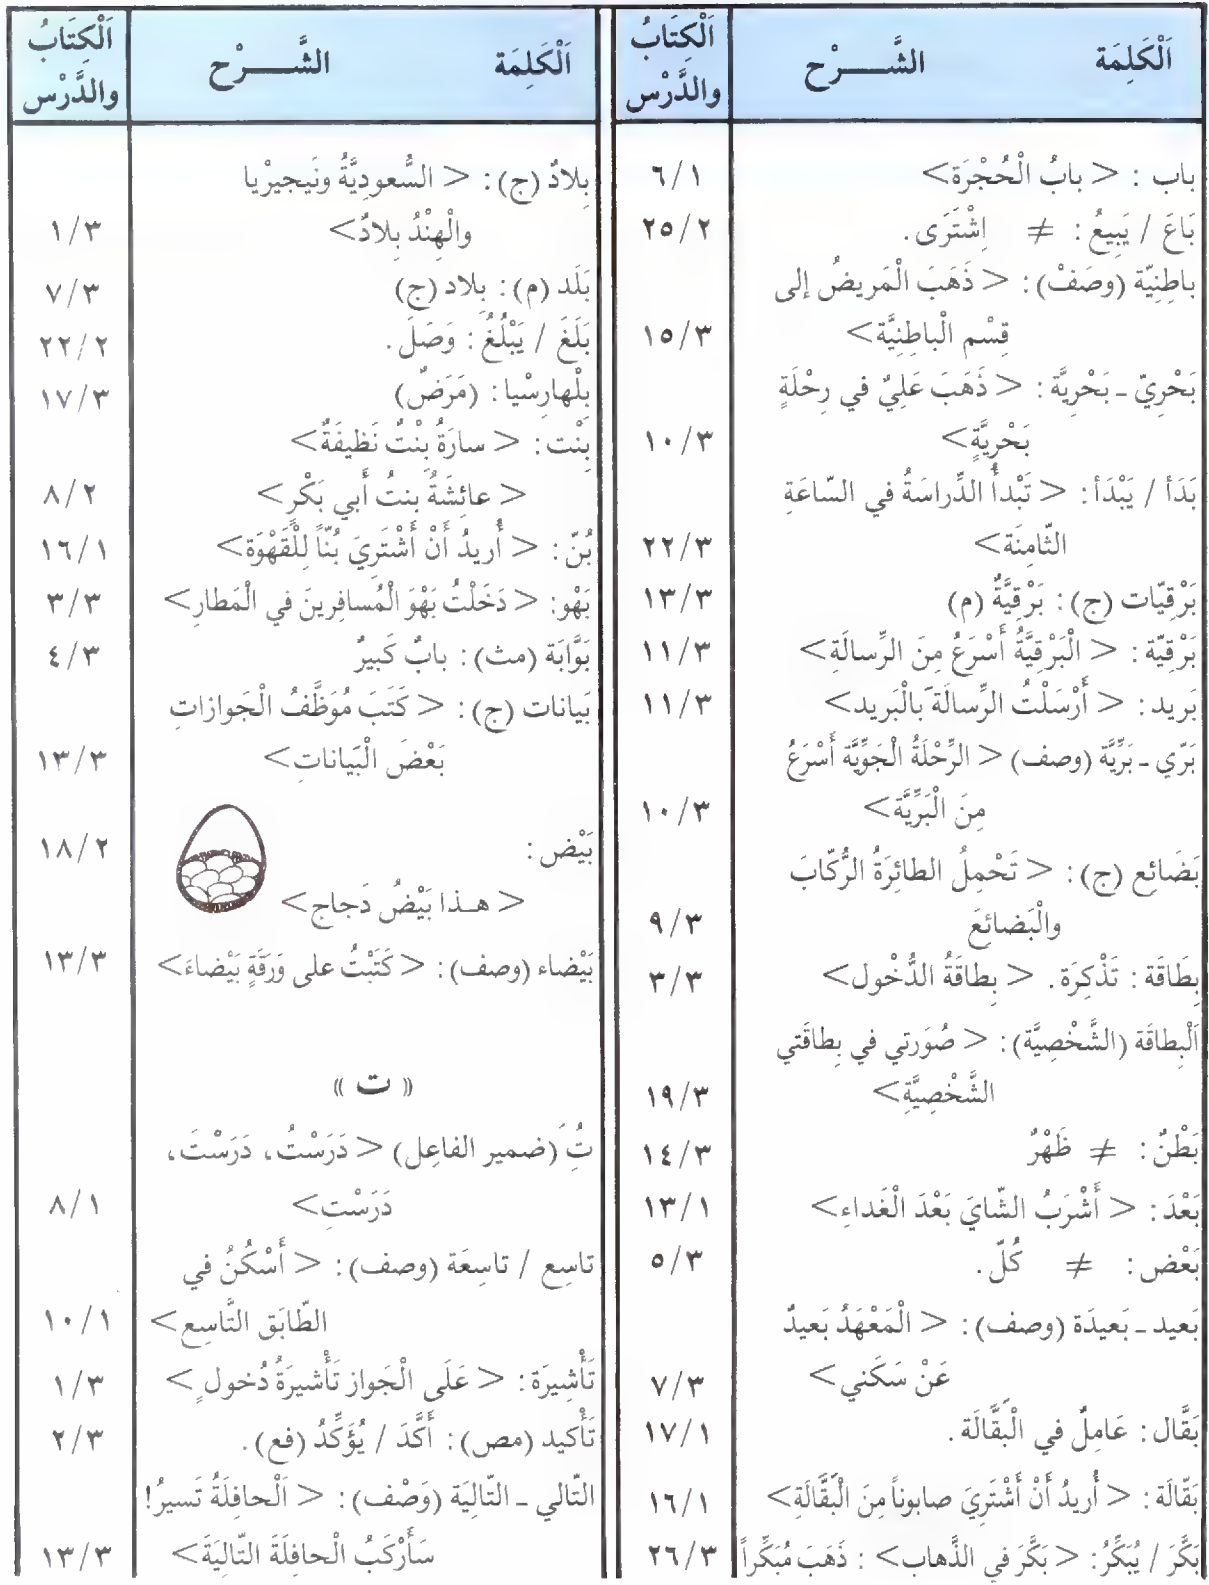 اَلْكَلِمَة الشَّـــرْح اَلْكِتَابُ والدَّرْس
باب : < بابُ الْحُجْرَة> ٦/١
بَاعَ / يَبِيعُ : ≠ اِشْتَرَى . ٢٥/٢
باطِنِيّة (وصَفْ) : < ذَهَبَ الْمَريضُ إلى
قِسْم الْباطِنِيَّة> ١٥/٣
بَحْرِيّ ـ بَحْرِيَّة : < ذَهَبَ عَلِيٌ في رِحْلَةٍ
بَحْرِيَّةٍ> ١٠/٣
بَدَأ / يَبْدَأ : < تَبْدأُ الدِّراسَةُ في السّاعَةِ
الثّامِنَة> ٢٢/٣
بَرْقِيّات (ج) : بَرْقِيَّةٌ (م) ١٣/٣
بَرْقِيّة : < الْبَرْقِيَّةُ أَسْرَعُ مِنَ الرِّسالَةِ> ١١/٣
بَريد : < أَرْسَلْتُ الرِّسالَةَ بالْبَريد> ١١/٣
بَرّي ـ بَرِّيَّة (وصف) < الرِّحْلَةُ الْجَوِّيَّة أَسْرَعُ
مِنَ الْبَرِّيَّة> ١٠/٣
بَضَائع (ج) : < تَحْمِلُ الطائِرَةُ الرُّكّابَ
والْبَضائعَ ٩/٣
بِطَاقَة : تَذْكِرَة . < بِطاقَةُ الدُّخْول> ٣/٣
اَلْبِطاقَة (الشَّخْصِيَّة) : < صُوَرتي في بِطاقَتي
الشَّخْصِيَّةِ> ١٩/٣
بَطْنٌ : ≠ ظَهْرٌ ١٤/٣
بَعْدَ : < أَشْرَبُ الشّايَ بَعْدَ الْغَداءِ> ١٣/١
بَعْض : ≠ كُلّ . ٥/٣
بَعيد ـ بَعيدَة (وصف) : < الْمَعْهَدُ بَعيدٌ
عَنْ سَكَني> ٧/٣
بَقَّال : عَامِلٌ في الْبِقَّالَة . ١٧/١
بَقّالَة : < أُريدُ أَنْ أَشْتَرِيَ صابوناً مِنَ الْبَقَّالَةِ> ١٦/١
بَكَّرَ / يُبَكِّرُ : < بَكَّرَ في الذَّهاب> : ذَهَبَ مُبَكِّراً ٢٦/٣
اَلْكَلِمَة الشَّـــرْح اَلْكِتَابُ والدَّرْس
بِلادٌ (ج) : < السُّعودِيَّةُ ونَيجيرْيا
والْهِنْدُ بِلادٌ> ١/٣
بَلَد (م) : بِلاد (ج) ٧/٣
بَلَغَ / يَبْلُغُ : وَصَلَ . ٢٢/٢
بِلْهارِسْيا : (مَرَضٌ) ١٧/٣
بِنْت : < سارَةُ بِنْتٌ نَظيفَةٌ>
< عائِشَةُ بِنتُ أَبي بَكْرٍ> ٨/٢
بُنّ : < أُريدُ أَنْ أَشْتَرِيَ بُنّاً لِلْقَهْوَة> ١٦/١
بَهْو : < دَخَلْتُ بَهْوَ الْمُسافِرينَ في الْمَطارِ> ٣/٣
بَوَّابَة (مث) : بابٌ كَبيرٌ ٤/٣
بَيانات (ج) : < كَتَبَ مُوَظَّفُ الْجَوازاتِ
بَعْضَ الْبَيانات> ١٣/٣
بَيْض : ١٨/٢
< هـذا بَيْضُ دَجاج>
بَيْضاء (وصف) : < كَتَبْتُ على وَرَقَةٍ بَيْضاءَ> ١٣/٣
« ت »
تُِ َ (ضمير الفاعِل) < دَرَسْتُ، دَرَسْتَ،
دَرَسْتِ> ٨/١
تاسِع / تاسِعَة (وصف) : < أَسْكُنُ في
الطّابَق التَّاسِع> ١٠/١
تَأْشِيرَة : < عَلَى الْجَواز تَأْشيرَةُ دُخولٍ> ١/٣
تَأْكيد (مص) : أَكَّدَ / يُؤَكِّدُ (فع) . ٢/٣
التّالي ـ التّالِيَة (وَصْف) : < اَلْحافِلَةُ تَسيرُ!
سَأَرْكَبُ الْحافِلَةَ التّالِيَةَ> ١٣/٣